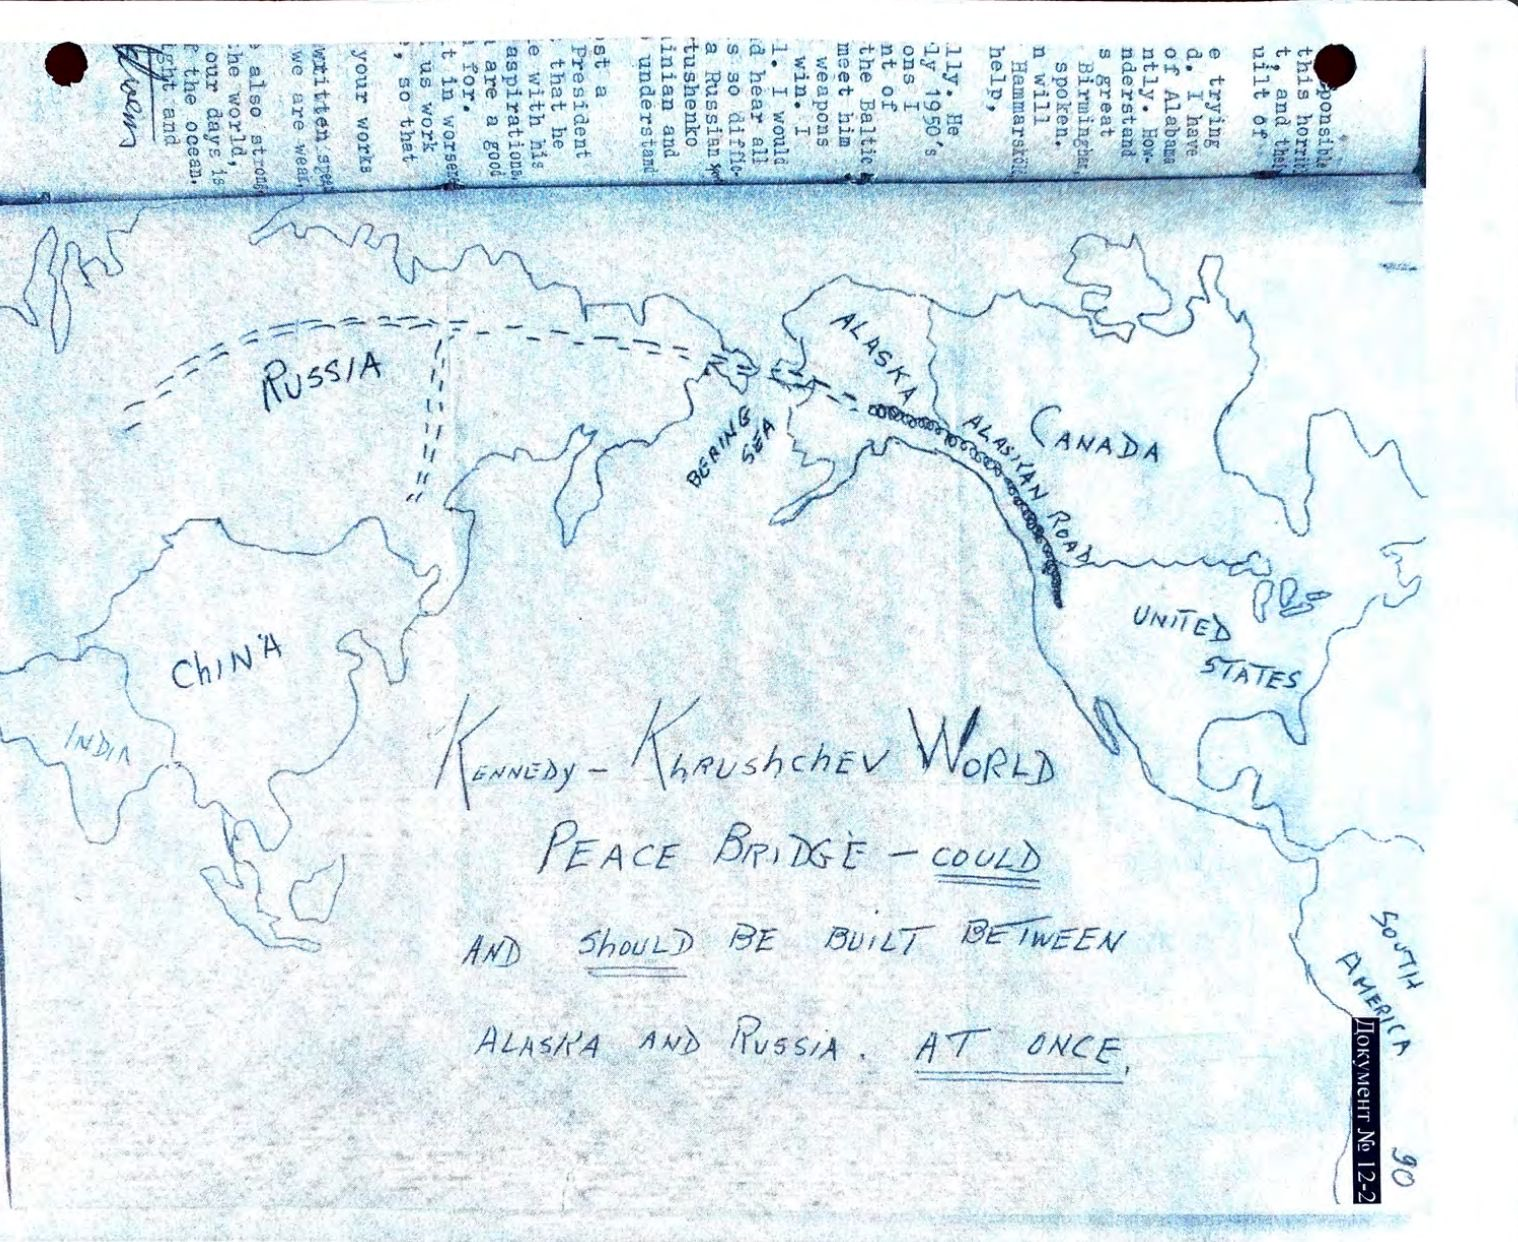 ponsible
this horri
t, and the
uilt of
e trying
d. I have
of Alabama
ntly. How-
nderstand
s great
Birmingham,
spoken.
n will
Hammarskjöl
help,
lly. He
ly 1950's
ons I
nt of
the Baltic
meet him
weapons
win. I
l. I would
d hear all
s so diffic-
a Russian
tushenko
inian and
understand
st a
President
that he
e with his
aspirations,
are a good
for.
t in worsen
us work
, so that
your works
written
we are wear
also strong
he world,
our days is
the ocean.
ght and
RUSSIA
ALASKA
BERING
SEA
ALASKAN ROAD
CANADA
UNITED
STATES
CHINA
INDIA
KENNEDY – KHRUSHCHEV WORLD
PEACE BRIDGE – COULD
AND SHOULD BE BUILT BETWEEN
ALASKA AND RUSSIA. AT ONCE.
SOUTH
AMERICA
Документ № 12-2
90